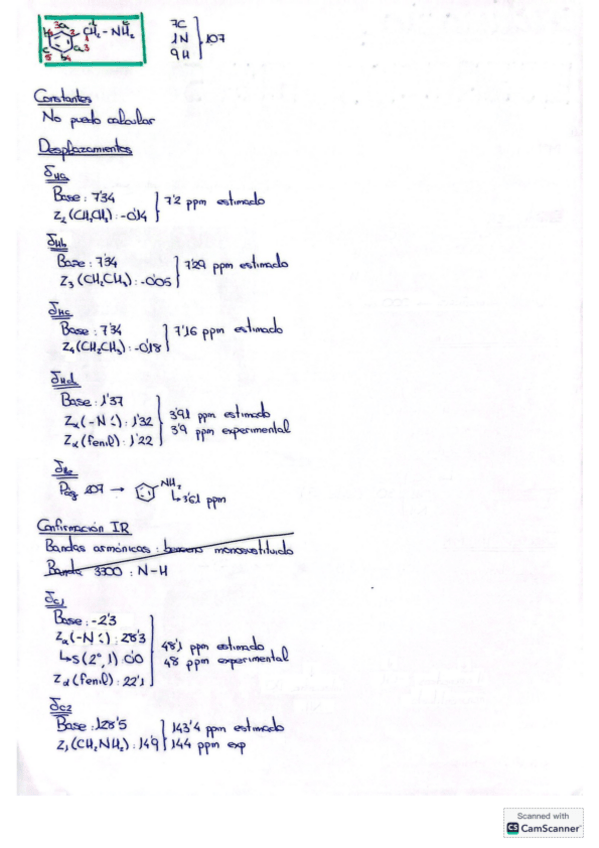 CH₂ - NH₂
7C
1N
9H
107
Constantes
No puedo calcular
Desplazamientos
δHa
Base: 7'34
Z₂ (CH₂CH₃): -0'14
7'2 ppm estimado
δHb
Base: 7'34
Z₃ (CH₂CH₃): -0'05
7'29 ppm estimado
δHc
Base: 7'34
Z₄ (CH₂CH₃): -0'18
7'16 ppm estimado
δHd
Base: 1'37
Zα (-N<): 1'32
Zα (fenil): 1'22
3'91 ppm estimado
3'9 ppm experimental
δHe
Pág 207 → NH₂
↳ 3'61 ppm
Confirmación IR
Bandas armónicas: benceno monosustituido
Banda 3300: N-H
δC1
Base: -2'3
Zα (-N<): 28'3
↳ S(2°, 1) 0'0
Zα (fenil): 22'1
48'1 ppm estimado
48 ppm experimental
δC2
Base: 128'5
Z₁ (CH₂NH₂): 14'9
143'4 ppm estimado
144 ppm exp
Scanned with
CS CamScanner